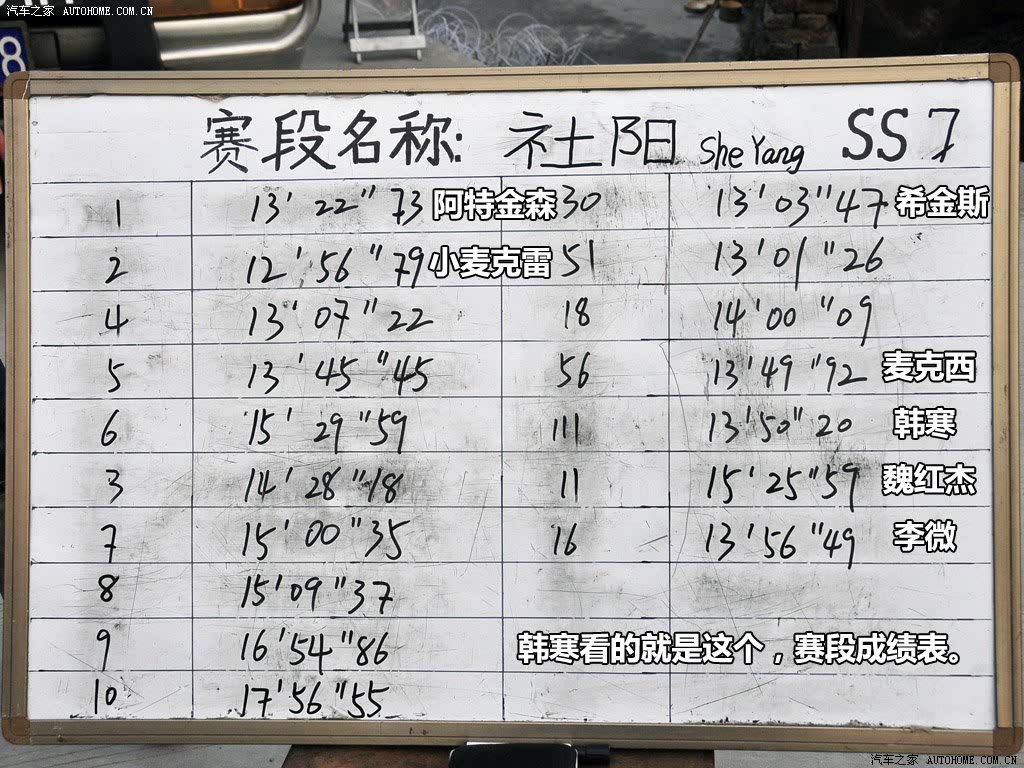 汽车之家 AUTOHOME.COM.CN
8
赛段名称: 社阳 She Yang SS7
1 13'22"73 阿特金森 30 13'03"47 希金斯
2 12'56"79 小麦克雷 51 13'01"26
4 13'07"22 18 14'00"09
5 13'45"45 56 13'49"92 麦克西
6 15'29"59 111 13'50"20 韩寒
3 14'28"18 11 15'25"59 魏红杰
7 15'00"35 16 13'56"49 李微
8 15'09"37
9 16'54"86 韩寒看的就是这个，赛段成绩表。
10 17'56"55
汽车之家 AUTOHOME.COM.CN